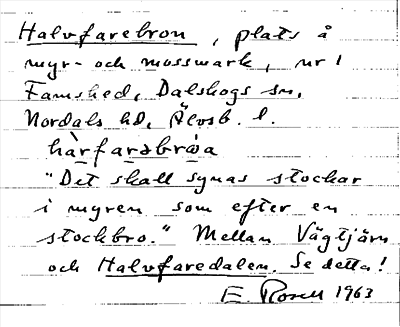 Halvfarebron, plats å
myr- och mossmark, nr 1
Famshed, Dalskogs sn,
Nordals hd, Älvsb. l.
hàrfarabrò̤a
"Det skall synas stockar
i myren som efter en
stockbro." Mellan Vägtjärn
och Halvfaredalen. Se detta!
E. Rosell 1963